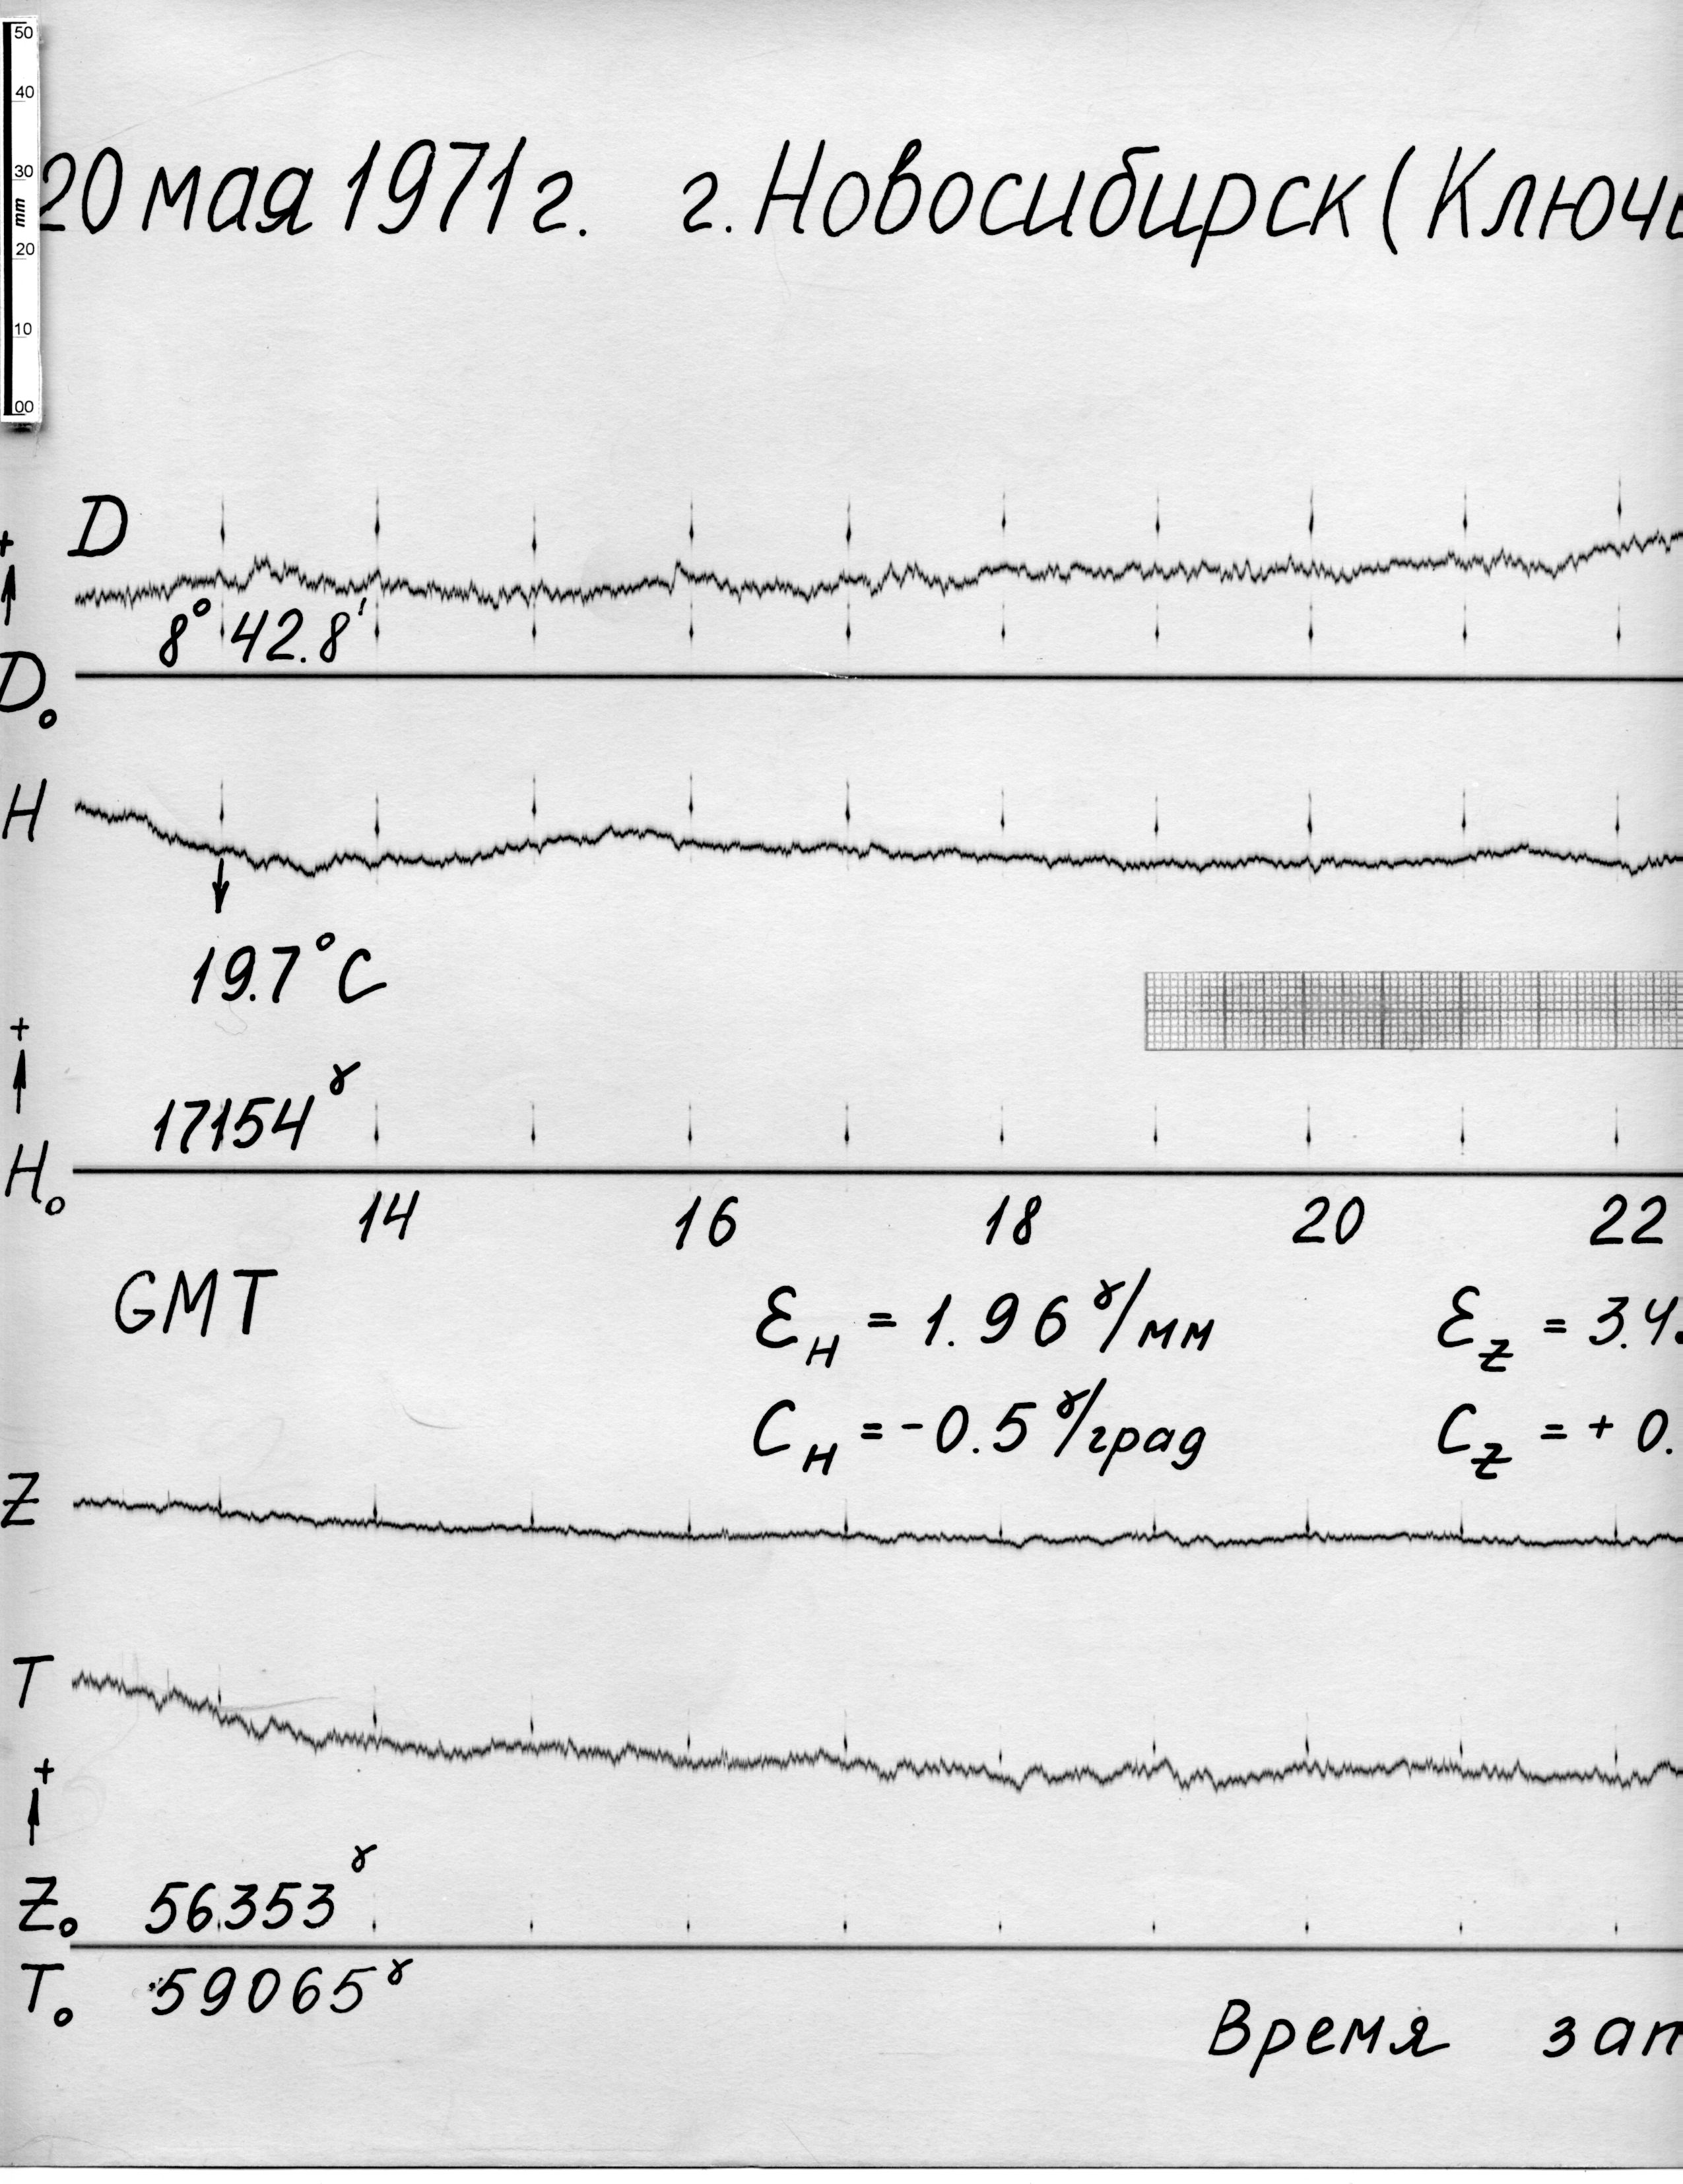 50
40
30
mm
20
10
00
20 мая 1971 г. г. Новосибирск (Ключ
D
+
8° 42.8'
D₀
H
19.7°C
+
17154ˠ
H₀
14 16 18 20 22
GMT
Ɛ_H = 1.96 ˠ/мм Ɛ_Z = 3.4
C_H = -0.5 ˠ/град C_Z = + 0.
Z
T
+
Z₀ 56353ˠ
T₀ 59065ˠ
Время зап